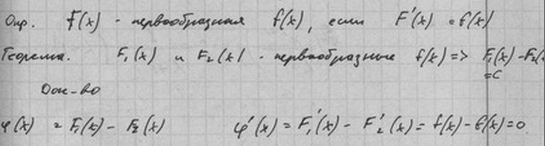 Опр. F(x) - первообразная f(x), если F'(x) = f(x)
Теорема. F₁(x) и F₂(x) - первообразные f(x) => F₁(x) - F₂(
= C
Док-во
φ(x) = F₁(x) - F₂(x) φ'(x) = F₁'(x) - F₂'(x) = f(x) - f(x) = 0